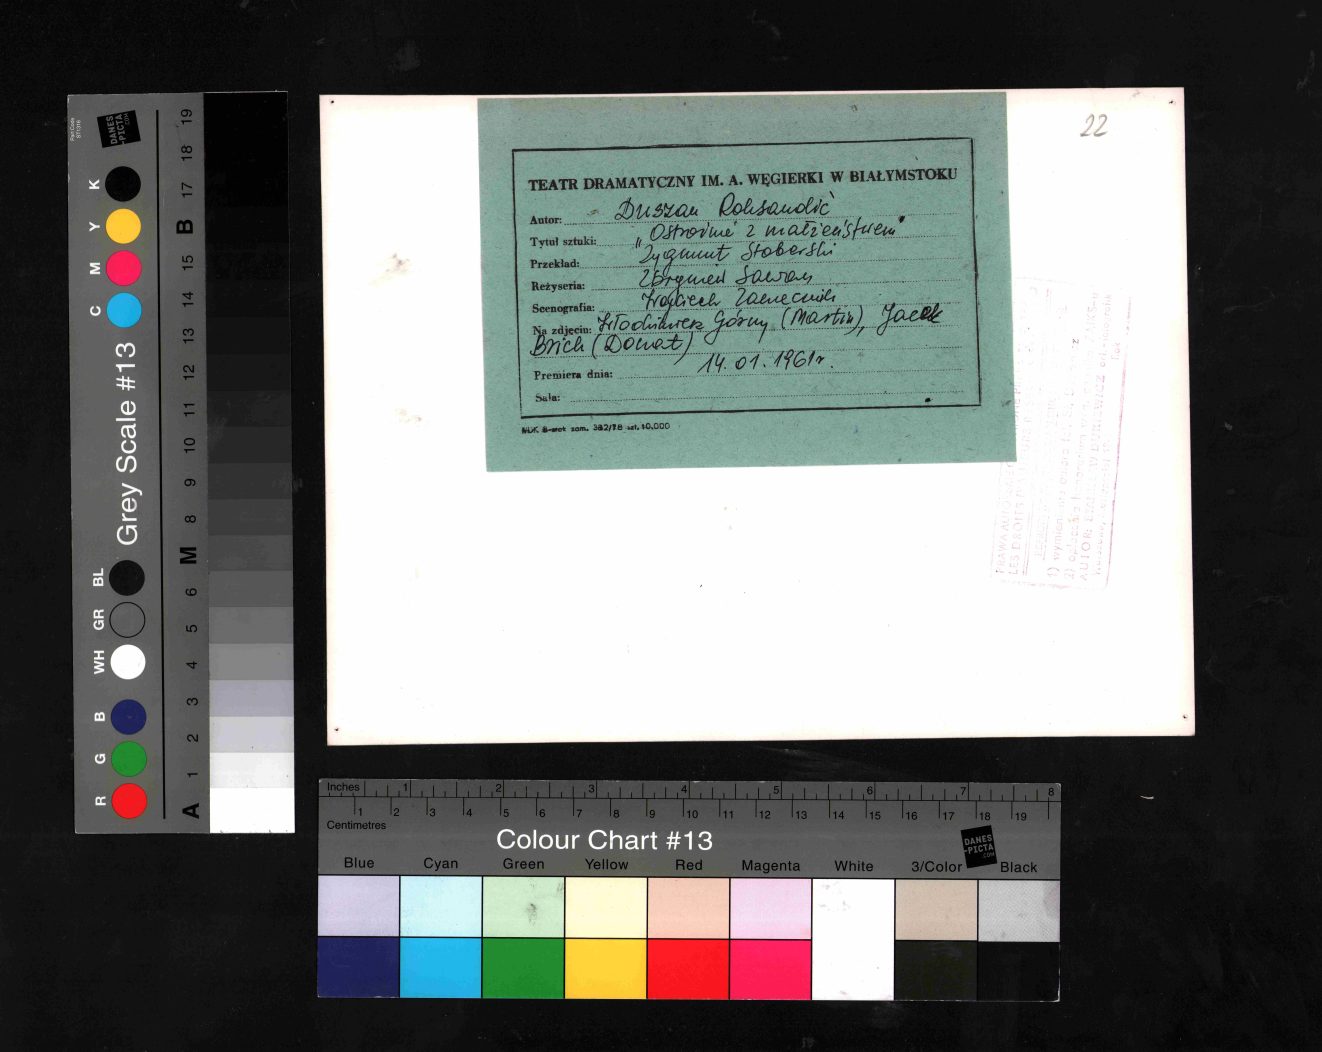 22
TEATR DRAMATYCZNY IM. A. WĘGIERKI W BIAŁYMSTOKU
Autor: Duszan Roksandić
Tytuł sztuki: „Ostrożnie z małżeństwem"
Przekład: Zygmunt Stoberski
Reżyseria: Zbigniew Sawan
Scenografia: Wojciech Zaleczniak
Na zdjęciu: Włodzimierz Górny (Martin), Jacek
Brick (Donat)
Premiera dnia: 14. 01. 1961r.
Sala:
zam. 382/78 szt. 10.000
PRAWA AUTO
LES DROITS D'A
1) wymienienia autora
2)
AUTOR:
Part Code
ST1316
DANES
-PICTA
.COM
Grey Scale #13
R G B WH GR BL C M Y K
A 1 2 3 4 5 6 M 8 9 10 11 12 13 14 15 B 17 18 19
Inches 1 2 3 4 5 6 7 8
1 2 3 4 5 6 7 8 9 10 11 12 13 14 15 16 17 18 19
Centimetres
Colour Chart #13
DANES
-PICTA
.COM
Blue Cyan Green Yellow Red Magenta White 3/Color Black